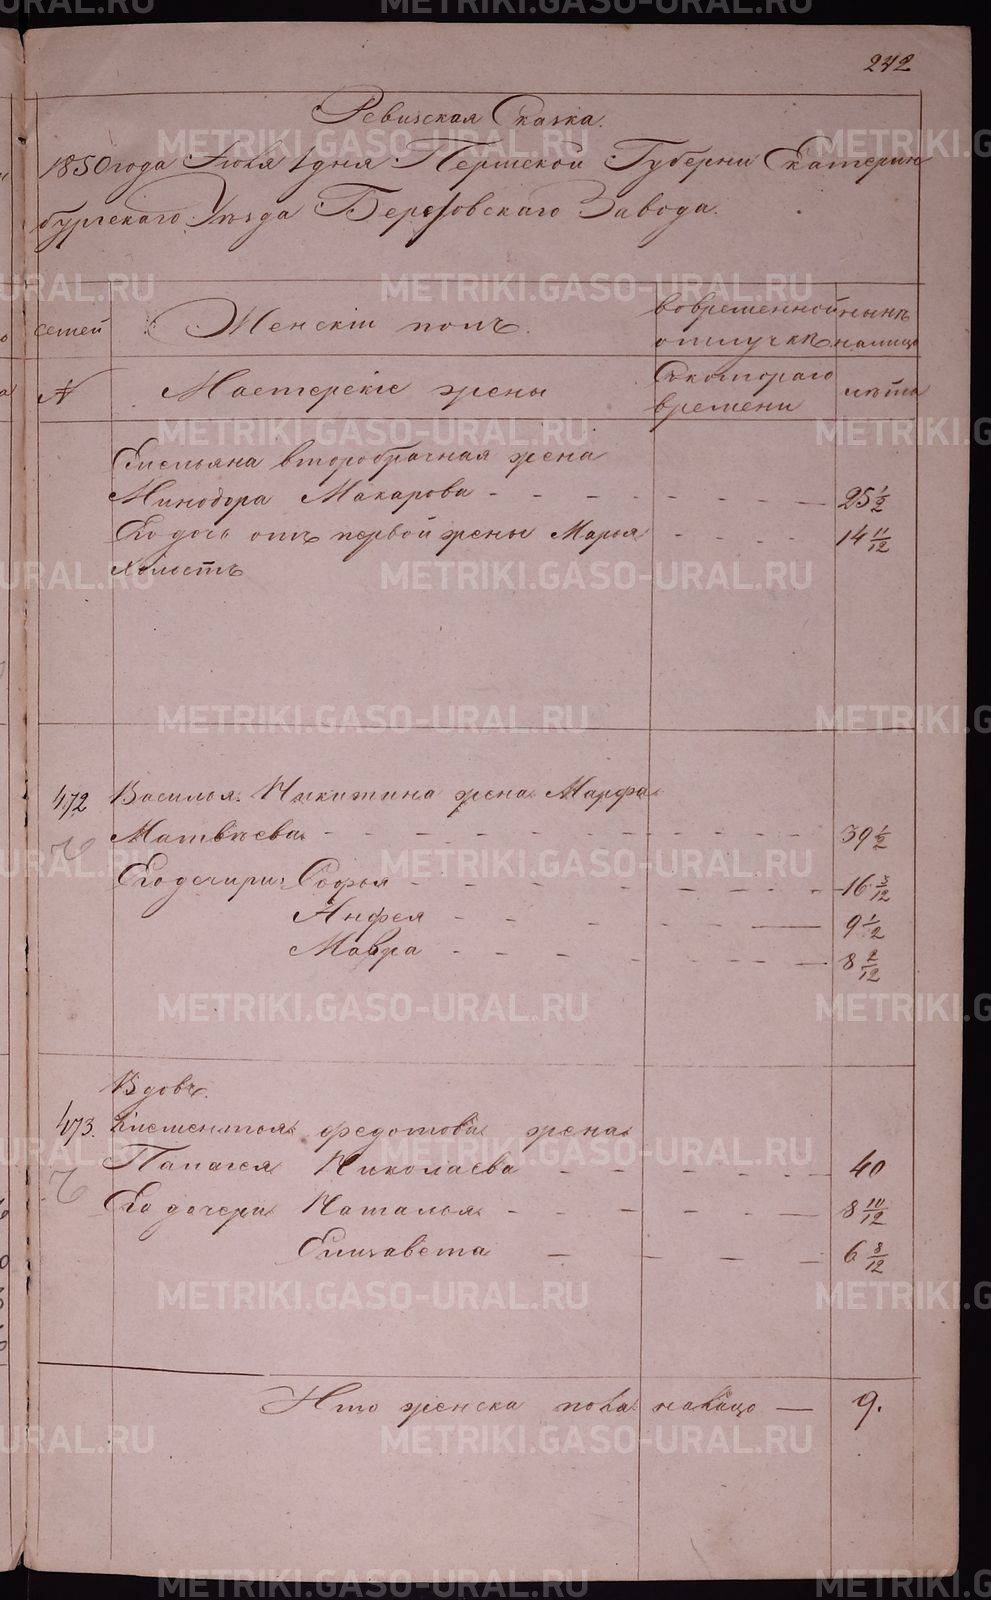 242
Ревизская Сказка.
1850 года Июля 1 дня Пермской Губернии Екатерин
бургскаго Уѣзда Березовскаго Завода.
семей
Женскій полъ.
вовременной
отлучкѣ
нынѣ
налицо
№
Мастерскіе жены
Съкотораго
времени
лѣта
Емельяна второбрачная жена
Минодора Макарова - - - - - 25 1/2
Его дочь отъ первой жены Марья - - - - 14 11/12
Холостъ
472 Василья Никитина жена Марфа
Матвѣева - - - - - 39 1/2
Его дочири: Софья - - - - - 16 3/12
Анфея - - - - - 9 1/2
Мавра - - - - - 8 2/12
Вдовъ.
473. Климентья федотова жена
Палагея Николаева - - - - - 40
Его дочери Наталья - - - - - 8 10/12
Елизавета - - - - 6 8/12
Итго женска пола налицо — 9.
METRIKI.GASO-URAL.RU